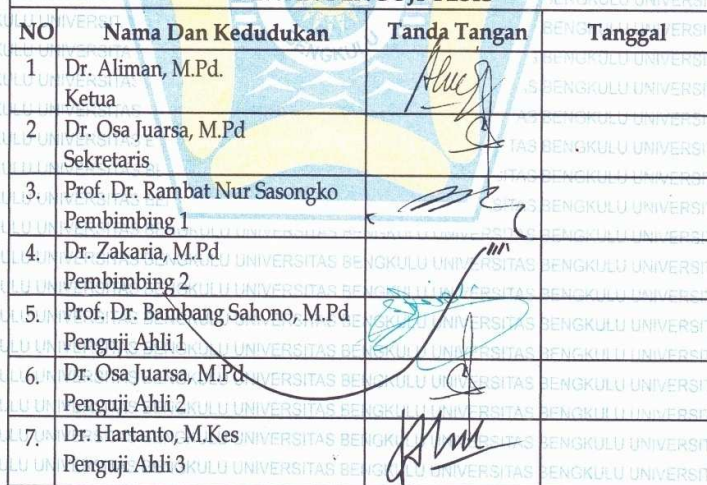 NO Nama Dan Kedudukan Tanda Tangan Tanggal
1 Dr. Aliman, M.Pd.
Ketua
2 Dr. Osa Juarsa, M.Pd
Sekretaris
3. Prof. Dr. Rambat Nur Sasongko
Pembimbing 1
4. Dr. Zakaria, M.Pd
Pembimbing 2
5. Prof. Dr. Bambang Sahono, M.Pd
Penguji Ahli 1
6. Dr. Osa Juarsa, M.Pd
Penguji Ahli 2
7. Dr. Hartanto, M.Kes
Penguji Ahli 3
BENGKULU
UNIVERSITAS BENGKULU